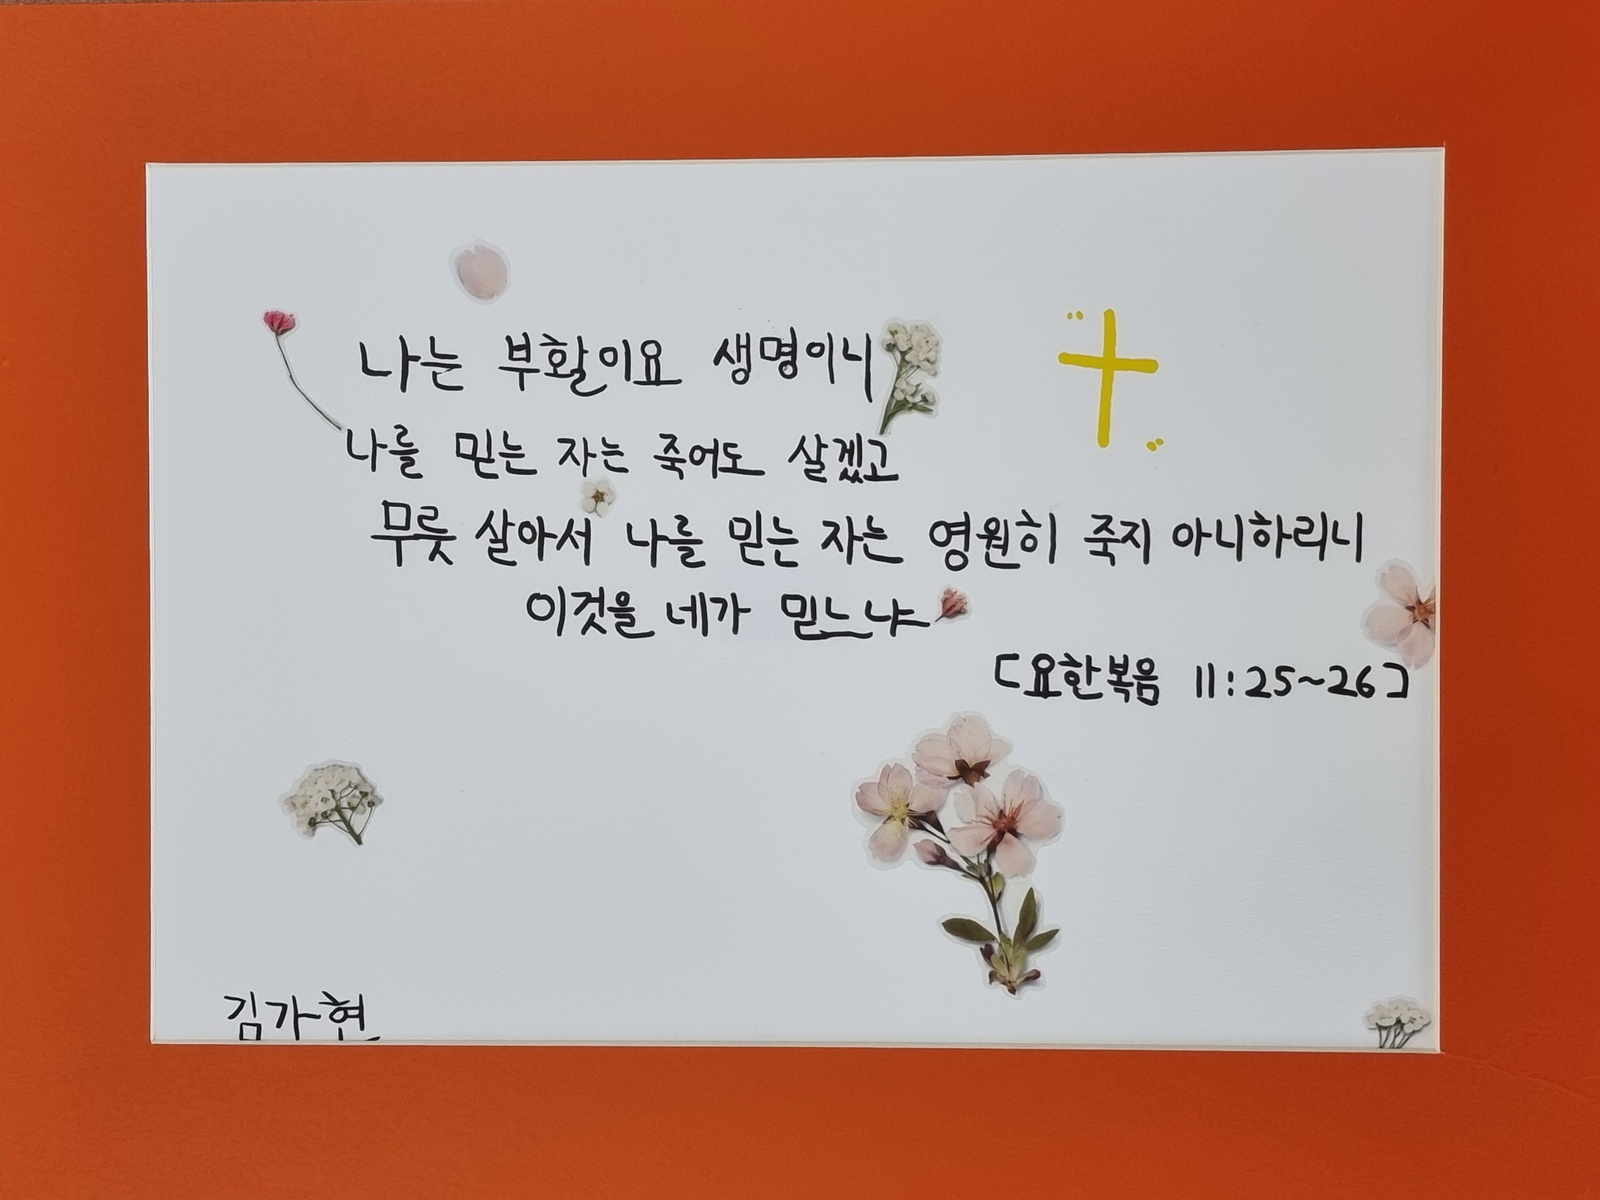 나는 부활이요 생명이니
나를 믿는 자는 죽어도 살겠고
무릇 살아서 나를 믿는 자는 영원히 죽지 아니하리니
이것을 네가 믿느냐
[요한복음 11:25~26]
김가현